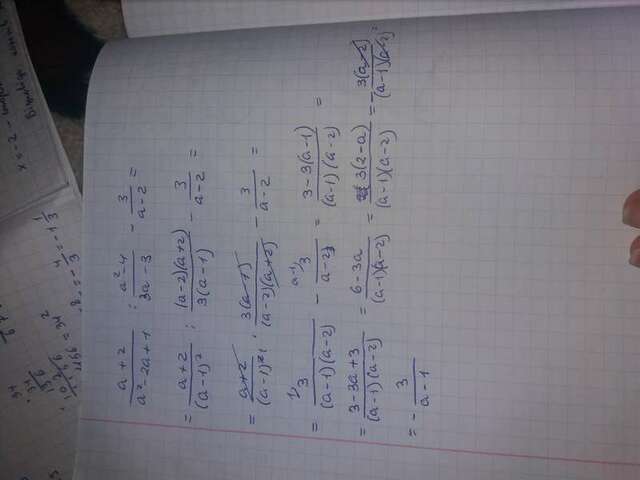 a+2 / a²-2a+1 : a²-4 / 3a-3 - 3 / a-2 =
= a+2 / (a-1)² : (a-2)(a+2) / 3(a-1) - 3 / a-2 =
= a+2 / (a-1)² · 3(a-1) / (a-2)(a+2) - 3 / a-2 =
= 3 / (a-1)(a-2) - 3 / a-2 = 3-3(a-1) / (a-1)(a-2) =
= 3-3a+3 / (a-1)(a-2) = 6-3a / (a-1)(a-2) = 3(2-a) / (a-1)(a-2) = - 3(a-2) / (a-1)(a-2) =
= - 3 / a-1
x=-2 -